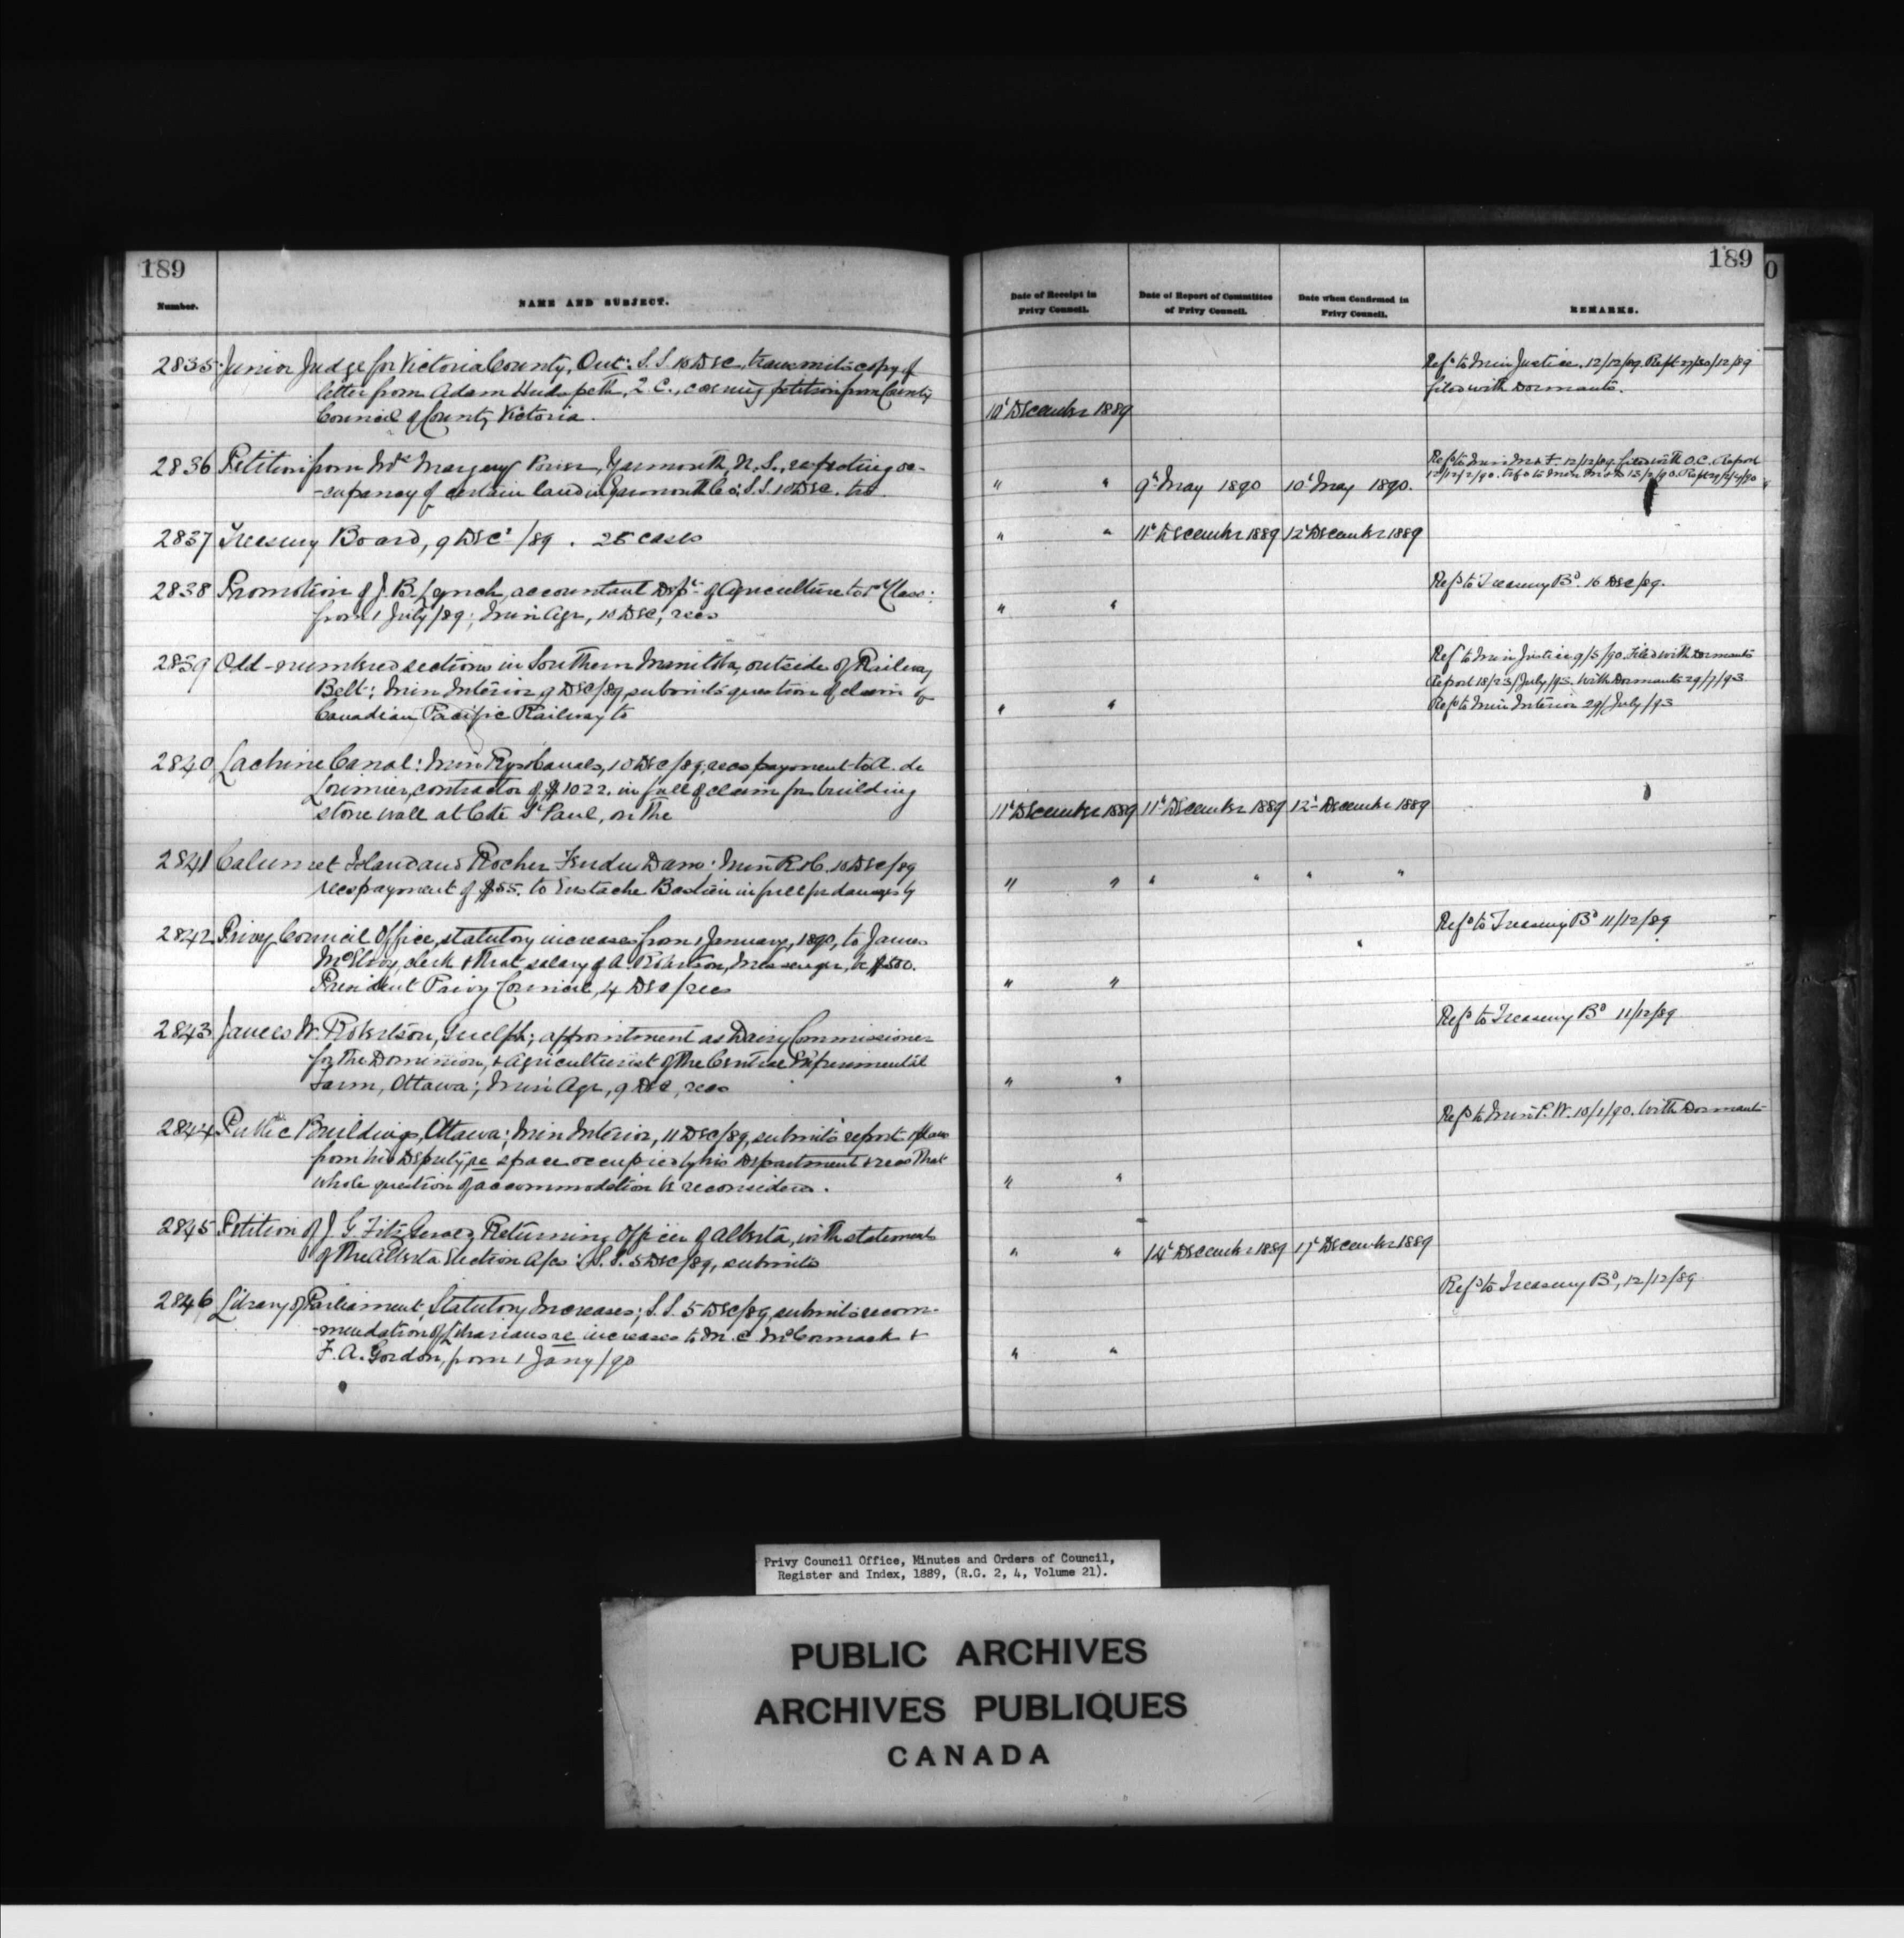 189
Number.
NAME AND SUBJECT.
2835 Junior Judge for Victoria County, Ont: S.S. 10 Dec, transmits copy of
letter from Adam Hudspeth, Q.C., covering petition from County
Council of County Victoria.
2836 Petition from Mrs Margery Power, Yarmouth, N.S., respecting oc-
-cupancy of certain land in Yarmouth Co; S.S. 10 Dec. trs
2837 Treasury Board, 9 Decr /89. 25 cases
2838 Promotion of J. B. Lynch, accountant Dept of Agriculture to 1st Class:
from 1 July /89; Min Agr, 10 Dec, recs
2839 Odd-numbered sections in Southern Manitoba, outside of Railway
Belt; Min Interior 9 Dec/89 submits question of claim of
Canadian Pacific Railway to
2840 Lachine Canal: Min Rys & Canals, 10 Dec/89, recs payment to A. de
Lorimier, contractor of $1022. in full of claim for building
stone wall at Côte St Paul, on the
2841 Calumet Island and Rocher Fendu Dams; Min R & C. 10 Dec/89
recs payment of $55. to Eustache Bastien in full for damages by
2842 Privy Council Office, statutory increases from 1 January, 1890, to James
McElroy, clerk & that salary of A. Robertson, Messenger, be $500.
President Privy Council, 4 Dec/ recs
2843 James W. Robertson, Guelph; appointment as Dairy Commissioner
for the Dominion, & Agriculturist of the Central Experimental
Farm, Ottawa; Min Agr, 9 Dec, recs
2844 Public Buildings, Ottawa; Min Interior, 11 Dec/89, submits report & plans
from his Deputy, re space occupied by his Department & recs that
whole question of accommodation be reconsidered.
2845 Petition of J. G. FitzGerald Returning Officer of Alberta, with statements
of the Alberta Election A/cs: S.S. 5 Dec/89, submits
2846 Library of Parliament, Statutory Increases; S.S. 5 Dec/89, submits recom-
-mendation of Librarians re increases to M. C. McCormack &
F. A. Gordon, from 1 Jany/90
189
0
Date of Receipt in
Privy Council.
Date of Report of Committee
of Privy Council.
Date when Confirmed in
Privy Council.
REMARKS.
Refd to Min Justice. 12/12/89. Rept 27/30/12/89
filed with Dormants.
10t December 1889
Refd to Min M & F. 12/12/89. filed with O.C. Report
" " 9t May 1890 10t May 1890.
" " 11t December 1889 12t December 1889
Refd to Treasury Bd. 16 Dec/89.
" "
Refd to Min Justice 9/5/90. Filed with Dormants
Report 18/23/July/93. With Dormants 29/7/93
" " Refd to Min Interior 29/July/93
11t December 1889 11t December 1889 12t December 1889
" " " " " "
Refd to Treasury Bd 11/12/89
" "
Refd to Treasury Bd 11/12/89
" "
Refd to Min P.W. 10/1/90. With Dormants
" "
" " 14t December 1889 17t December 1889
Refd to Treasury Bd, 12/12/89
" "
Privy Council Office, Minutes and Orders of Council,
Register and Index, 1889, (R.G. 2, 4, Volume 21).
PUBLIC ARCHIVES
ARCHIVES PUBLIQUES
CANADA